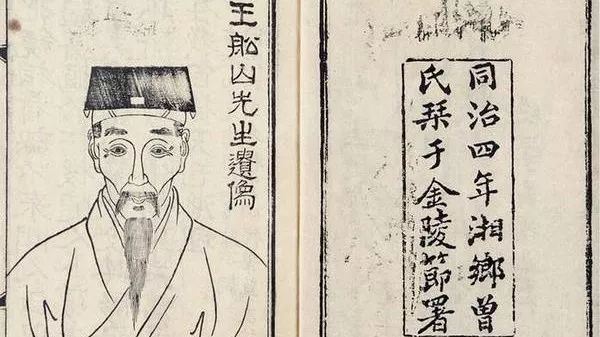 同治四年湘鄉曾
氏栞于金陵節署
王船山先生遺像